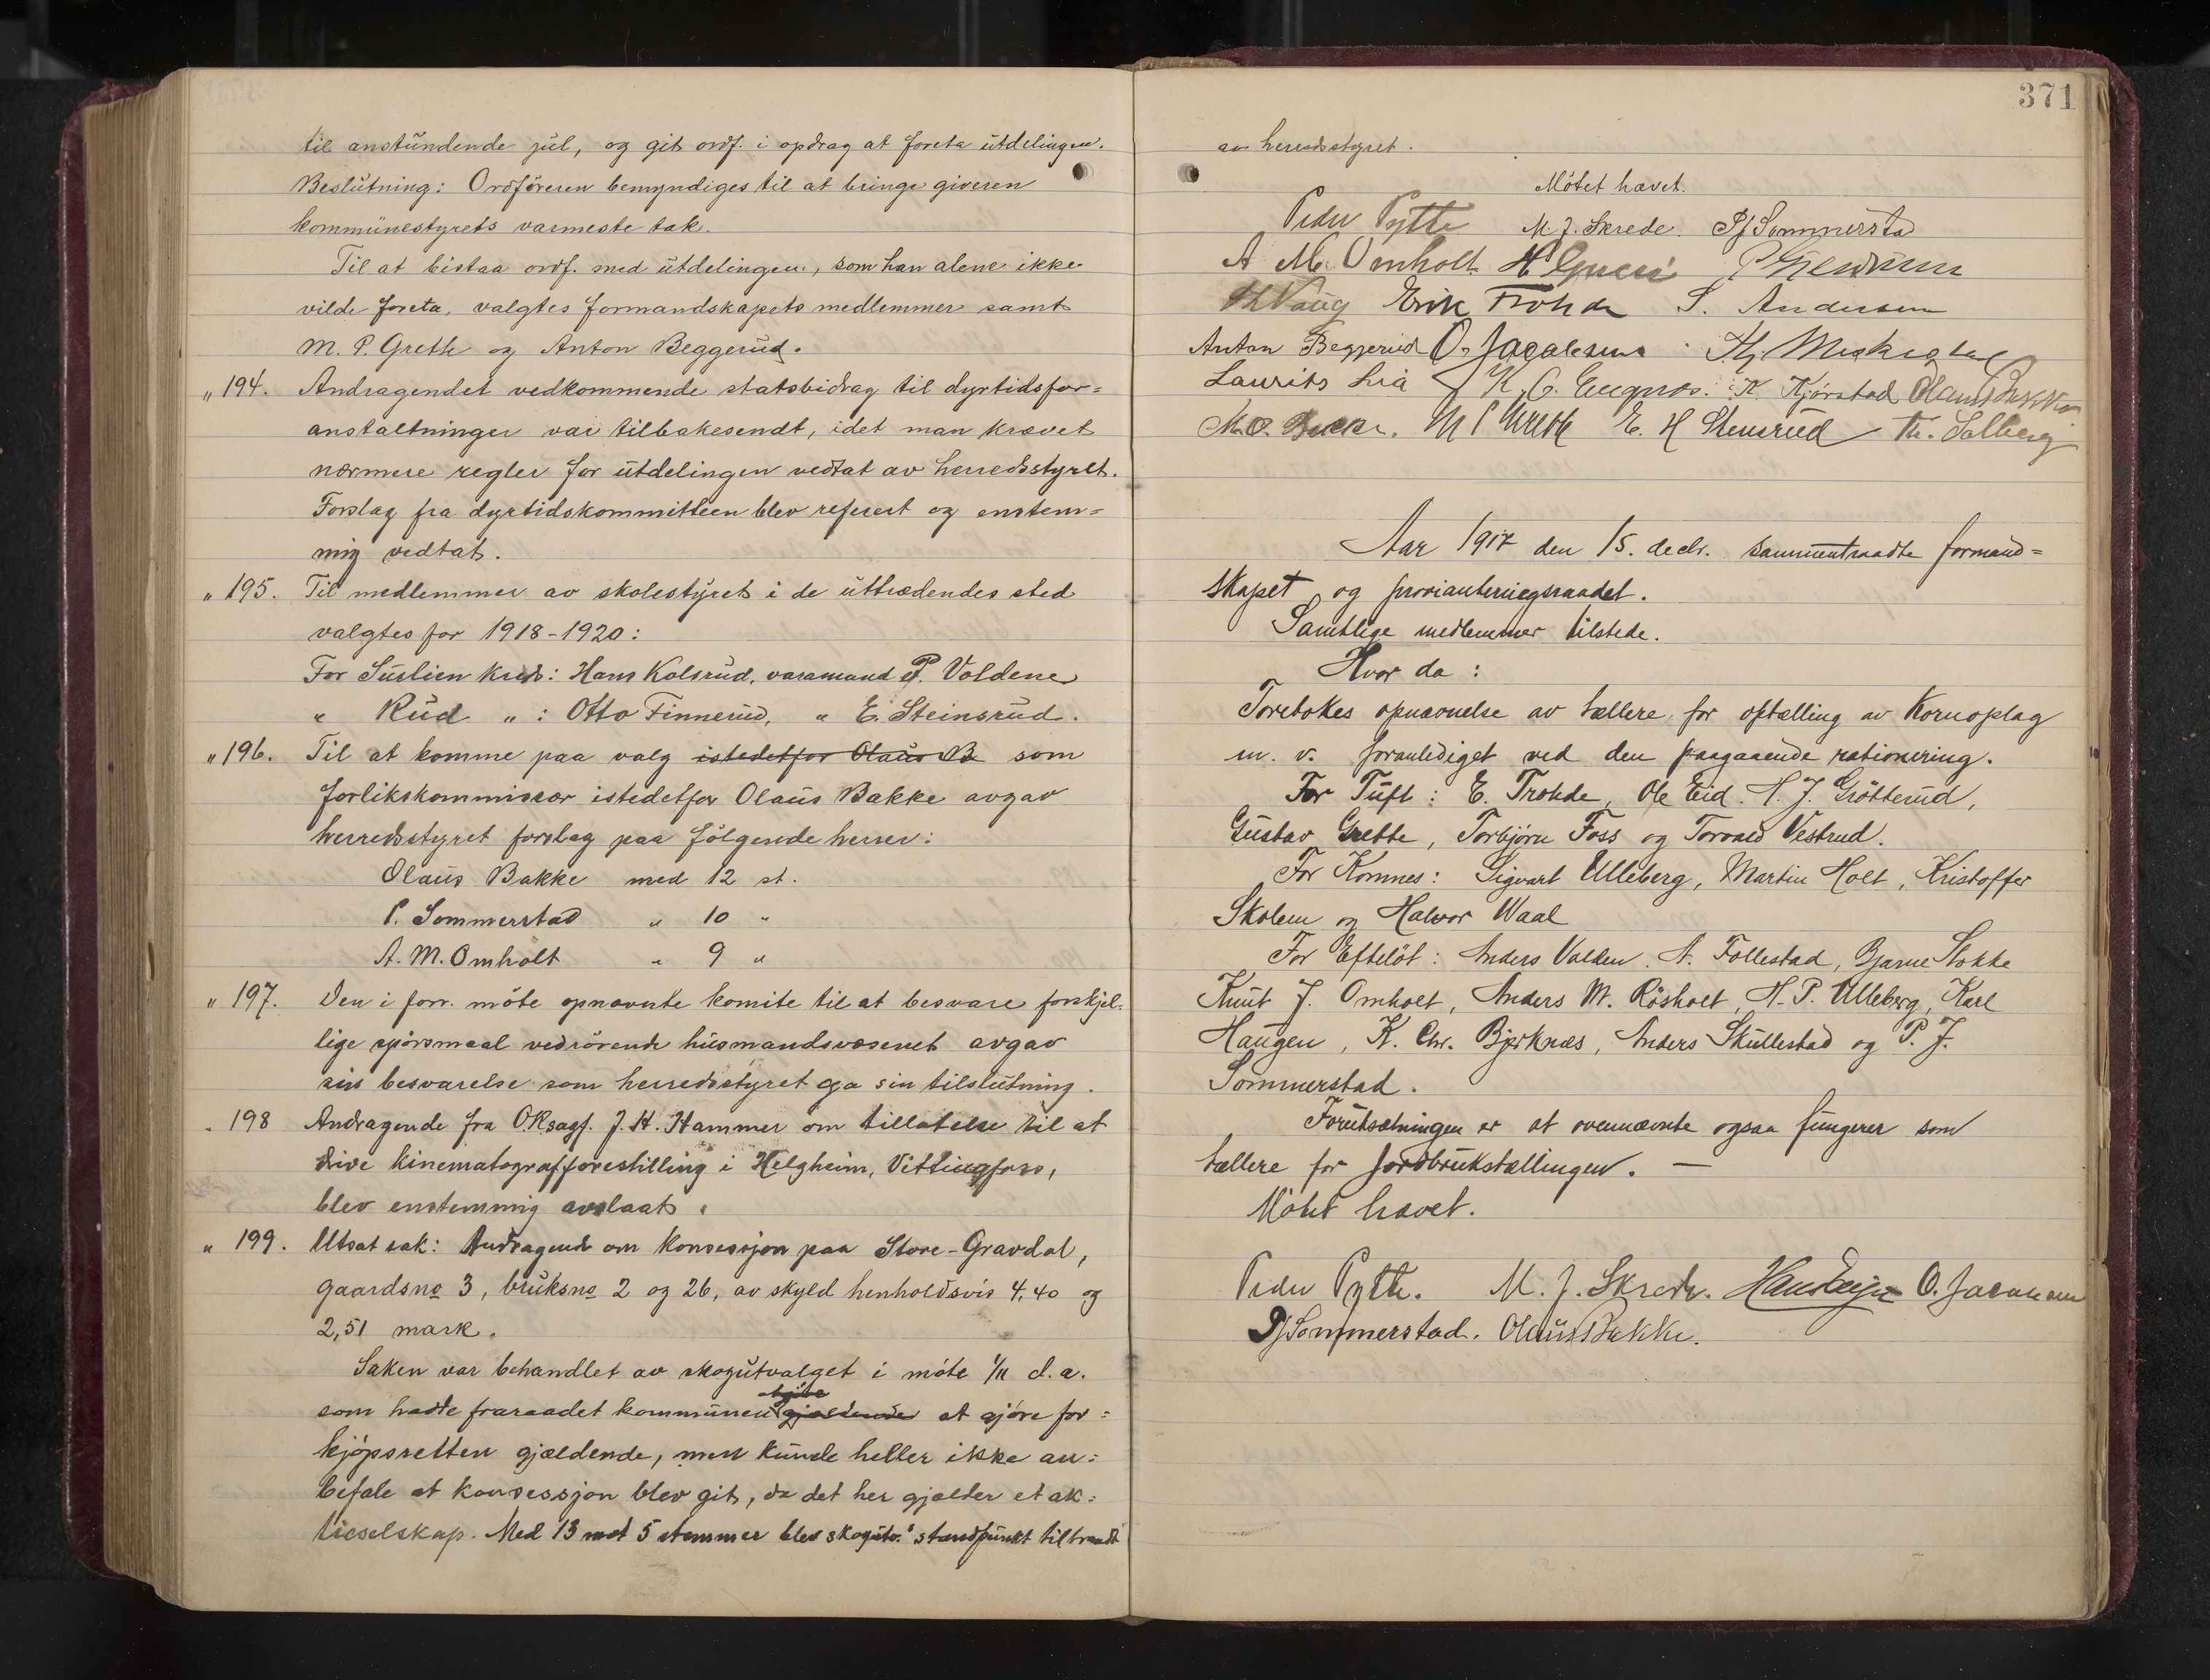 til anstundende jul, og git ordf. i opdrag at foreta utdelingen.
Beslutning: Ordføreren bemyndiges til at bringe giveren
kommunestyrets varmeste tak.
Til at bistaa ordf. med utdelingen, som han alene ikke
vilde foreta, valgtes formandskapets medlemmer samt
M. P. Greth og Anton Beggerud.
„ 194. Andragendet vedkommende statsbidrag til dyrtidsfor=
anstaltninger var tilbakesendt, idet man krævet
nærmere regler for utdelingen vedtat av herredsstyret.
Forslag fra dyrtidskommitteen blev referert og enstem=
mig vedtat.
„ 195. Til medlemmer av skolestyret i de uttrædendes sted
valgtes for 1918-1920:
For Suslien kreds: Hans Kolsrud, varamand P. Voldene
„ Rud „ : Otto Finnerud, „ E. Steinsrud.
„ 196. Til at komme paa valg istedetfor Olaus B som
forlikskommissær istedetfor Olaus Bakke avgav
herredsstyret forslag paa følgende herrer:
Olaus Bakke med 12 st.
P. Sommerstad „ 10 „
A. M. Omholt „ 9 „
„ 197. Den i forr. møte opnævnte komite til at besvare forskjel-
lige spørsmaal vedrørende husmandsvæsenet avgav
sin besvarelse som herredsstyret ga sin tilslutning.
„ 198 Andragende fra O.R.sagf. J. H. Hammer om tillatelse til at
drive kinematografforestilling i Helgheim, Vittingfoss,
blev enstemmig avslaat.
„ 199. Utsat sak: Andragende om konsessjon paa Store-Gravdal,
gaardsno 3, bruksno 2 og 26, av skyld henholdsvis 4,40 og
2,51 mark.
Saken var behandlet av skogutvalget i møte 1/11 d.a.
som hadde fraraadet kommunen gjældende at gjøre for=
kjøpsretten gjældende, men kunde heller ikke an=
befale at konsessjon blev git, da det her gjælder et ak=
tieselskap. Med 13 mot 5 stemmer blev skogutv.s standpunkt tiltraadt
371
av herredsstyret.
Møtet hævet.
Peder Pytte M. J. Skrede. P J Sommerstad
A M. Omholt
Th Vaug Erik Trohde S. Andersen
Anton Beggerud O. Jacobsen
Laurits Lia K. Kjørstad Olaus Bakke
M P Greth E. H Stensrud Th. Solberg
Aar 1917 den 15. decbr. sammentraadte formand=
skapet og provianteringsraadet.
Samtlige medlemmer tilstede.
Hvor da:
Foretokes opnævnelse av tællere for optælling av kornoplag
m. v. foranlediget ved den paagaaende rationering.
For Tuft: E. Trohde, Ole Eid. H. J. Grøtterud,
Gustav Grette, Torbjørn Foss og Torvald Vestrud.
For Komnes: Sigvart Ulleberg, Martin Holt, Kristoffer
Skolem og Halvor Waal
For Efteløt: Anders Valden. A. Follestad, Bjarne Stokke
Knut J. Omholt, Anders M. Røsholt, H. P. Ulleberg, Karl
Haugen, K. Chr. Bjerknæs, Anders Skullestad og P. J.
Sommerstad.
Forutsætningen er at ovennævnte ogsaa fungerer som
tællere for jordbrukstællingen. —
Møtet hævet.
Peder Pytte. M. J. Skrede. O. Jacobsen
P J Sommerstad. Olaus Bakke.